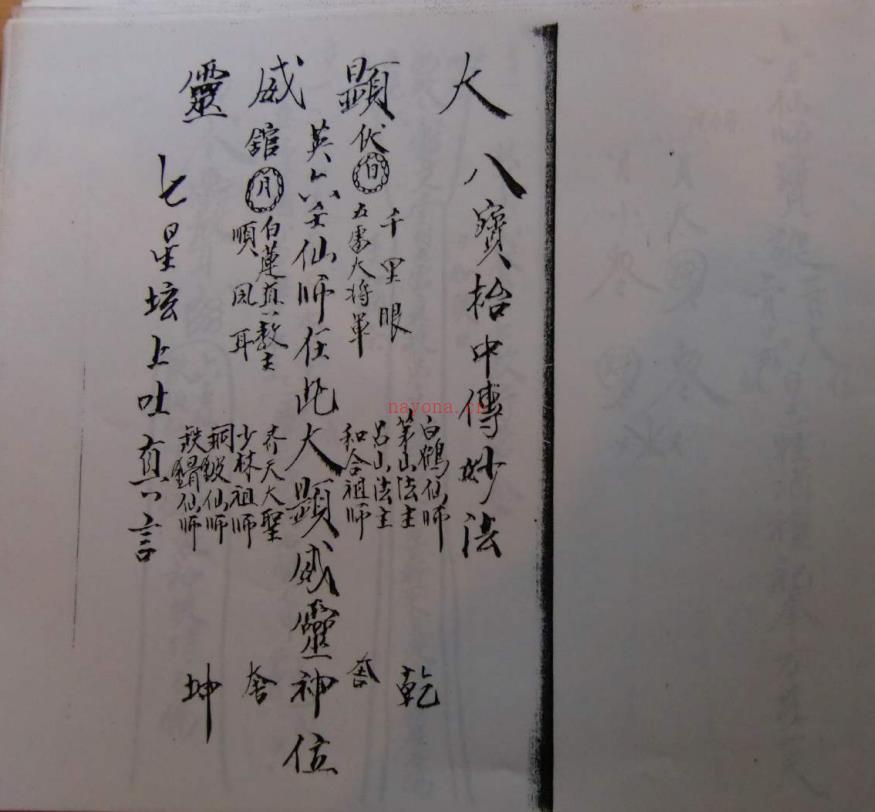 大顯威靈
八寶枱中傳妙法
千里眼
伏日五雷大將軍
英六壬仙師在此大顯威靈神位
舘月白蓮真教主
順風耳
七星坛上吐真言
白鶴仙師
茅山法主
呂山法主
和合祖師
齐天大聖
少林祖師
仙師
仙師
乾
坤
nayona.cn